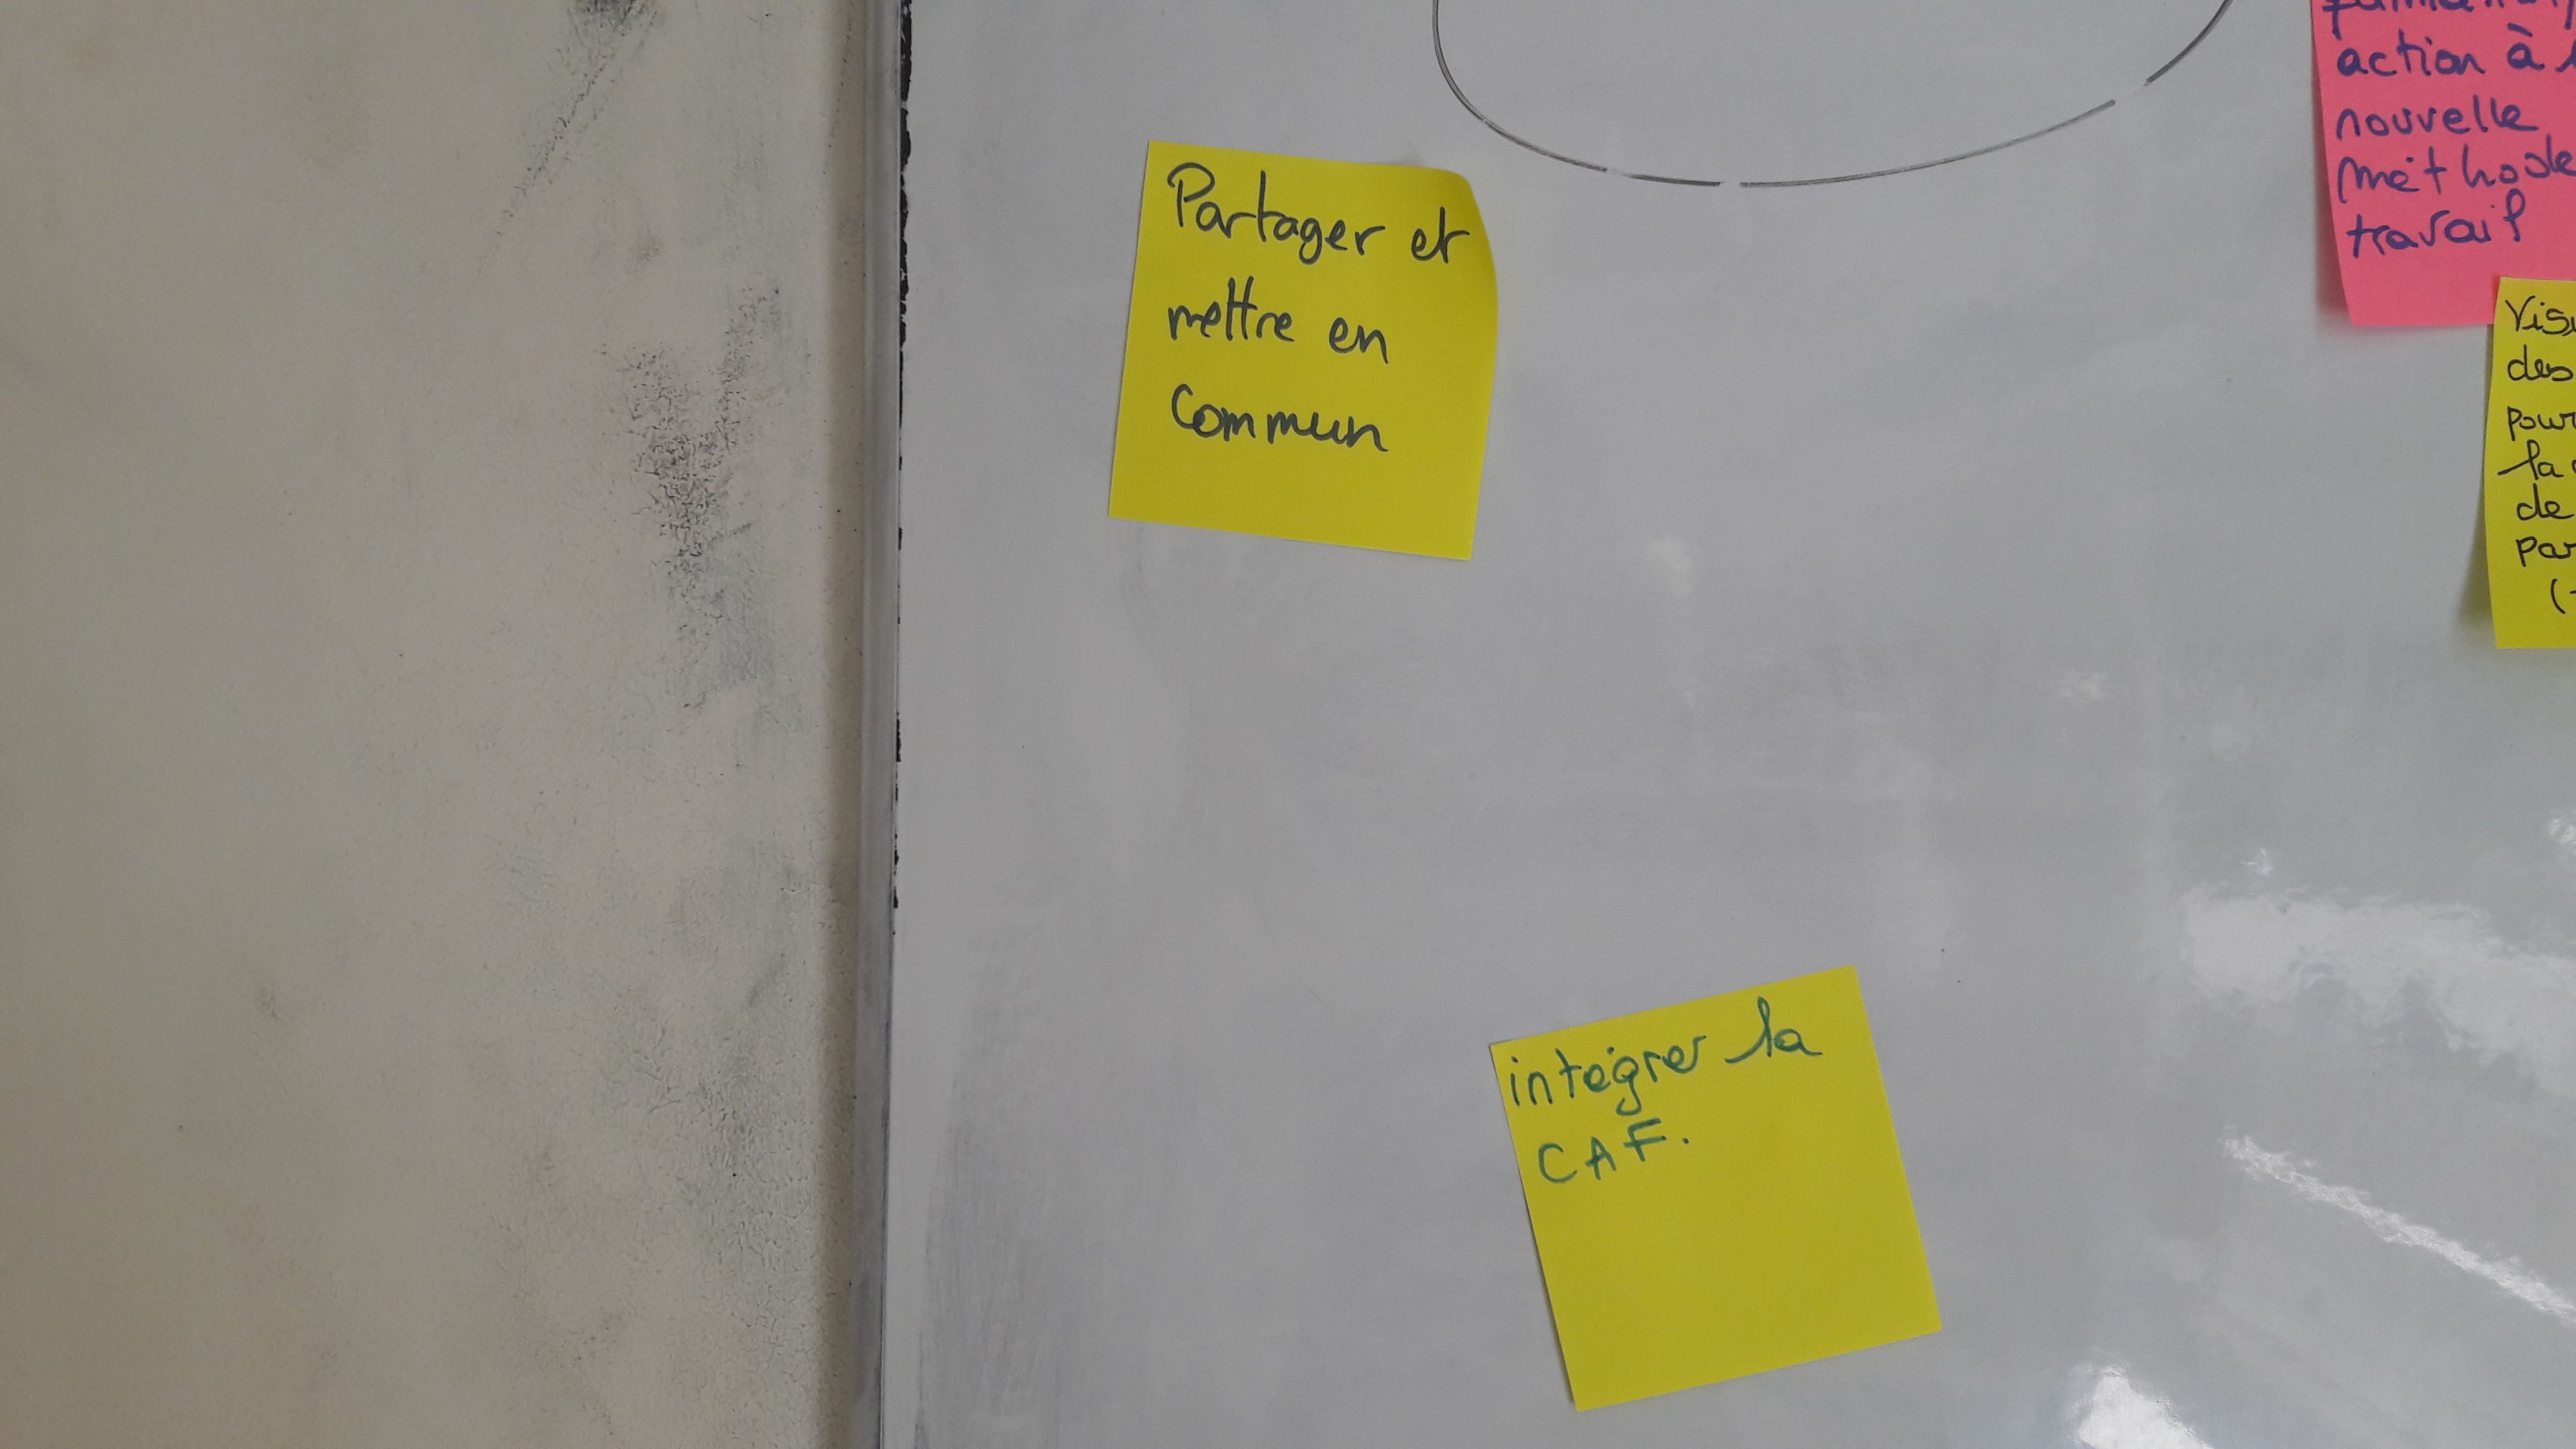 Partager et
mettre en
Commun
action à
nouvelle
méthode
travail
des
pour
la
de
intégrer la
CAF.